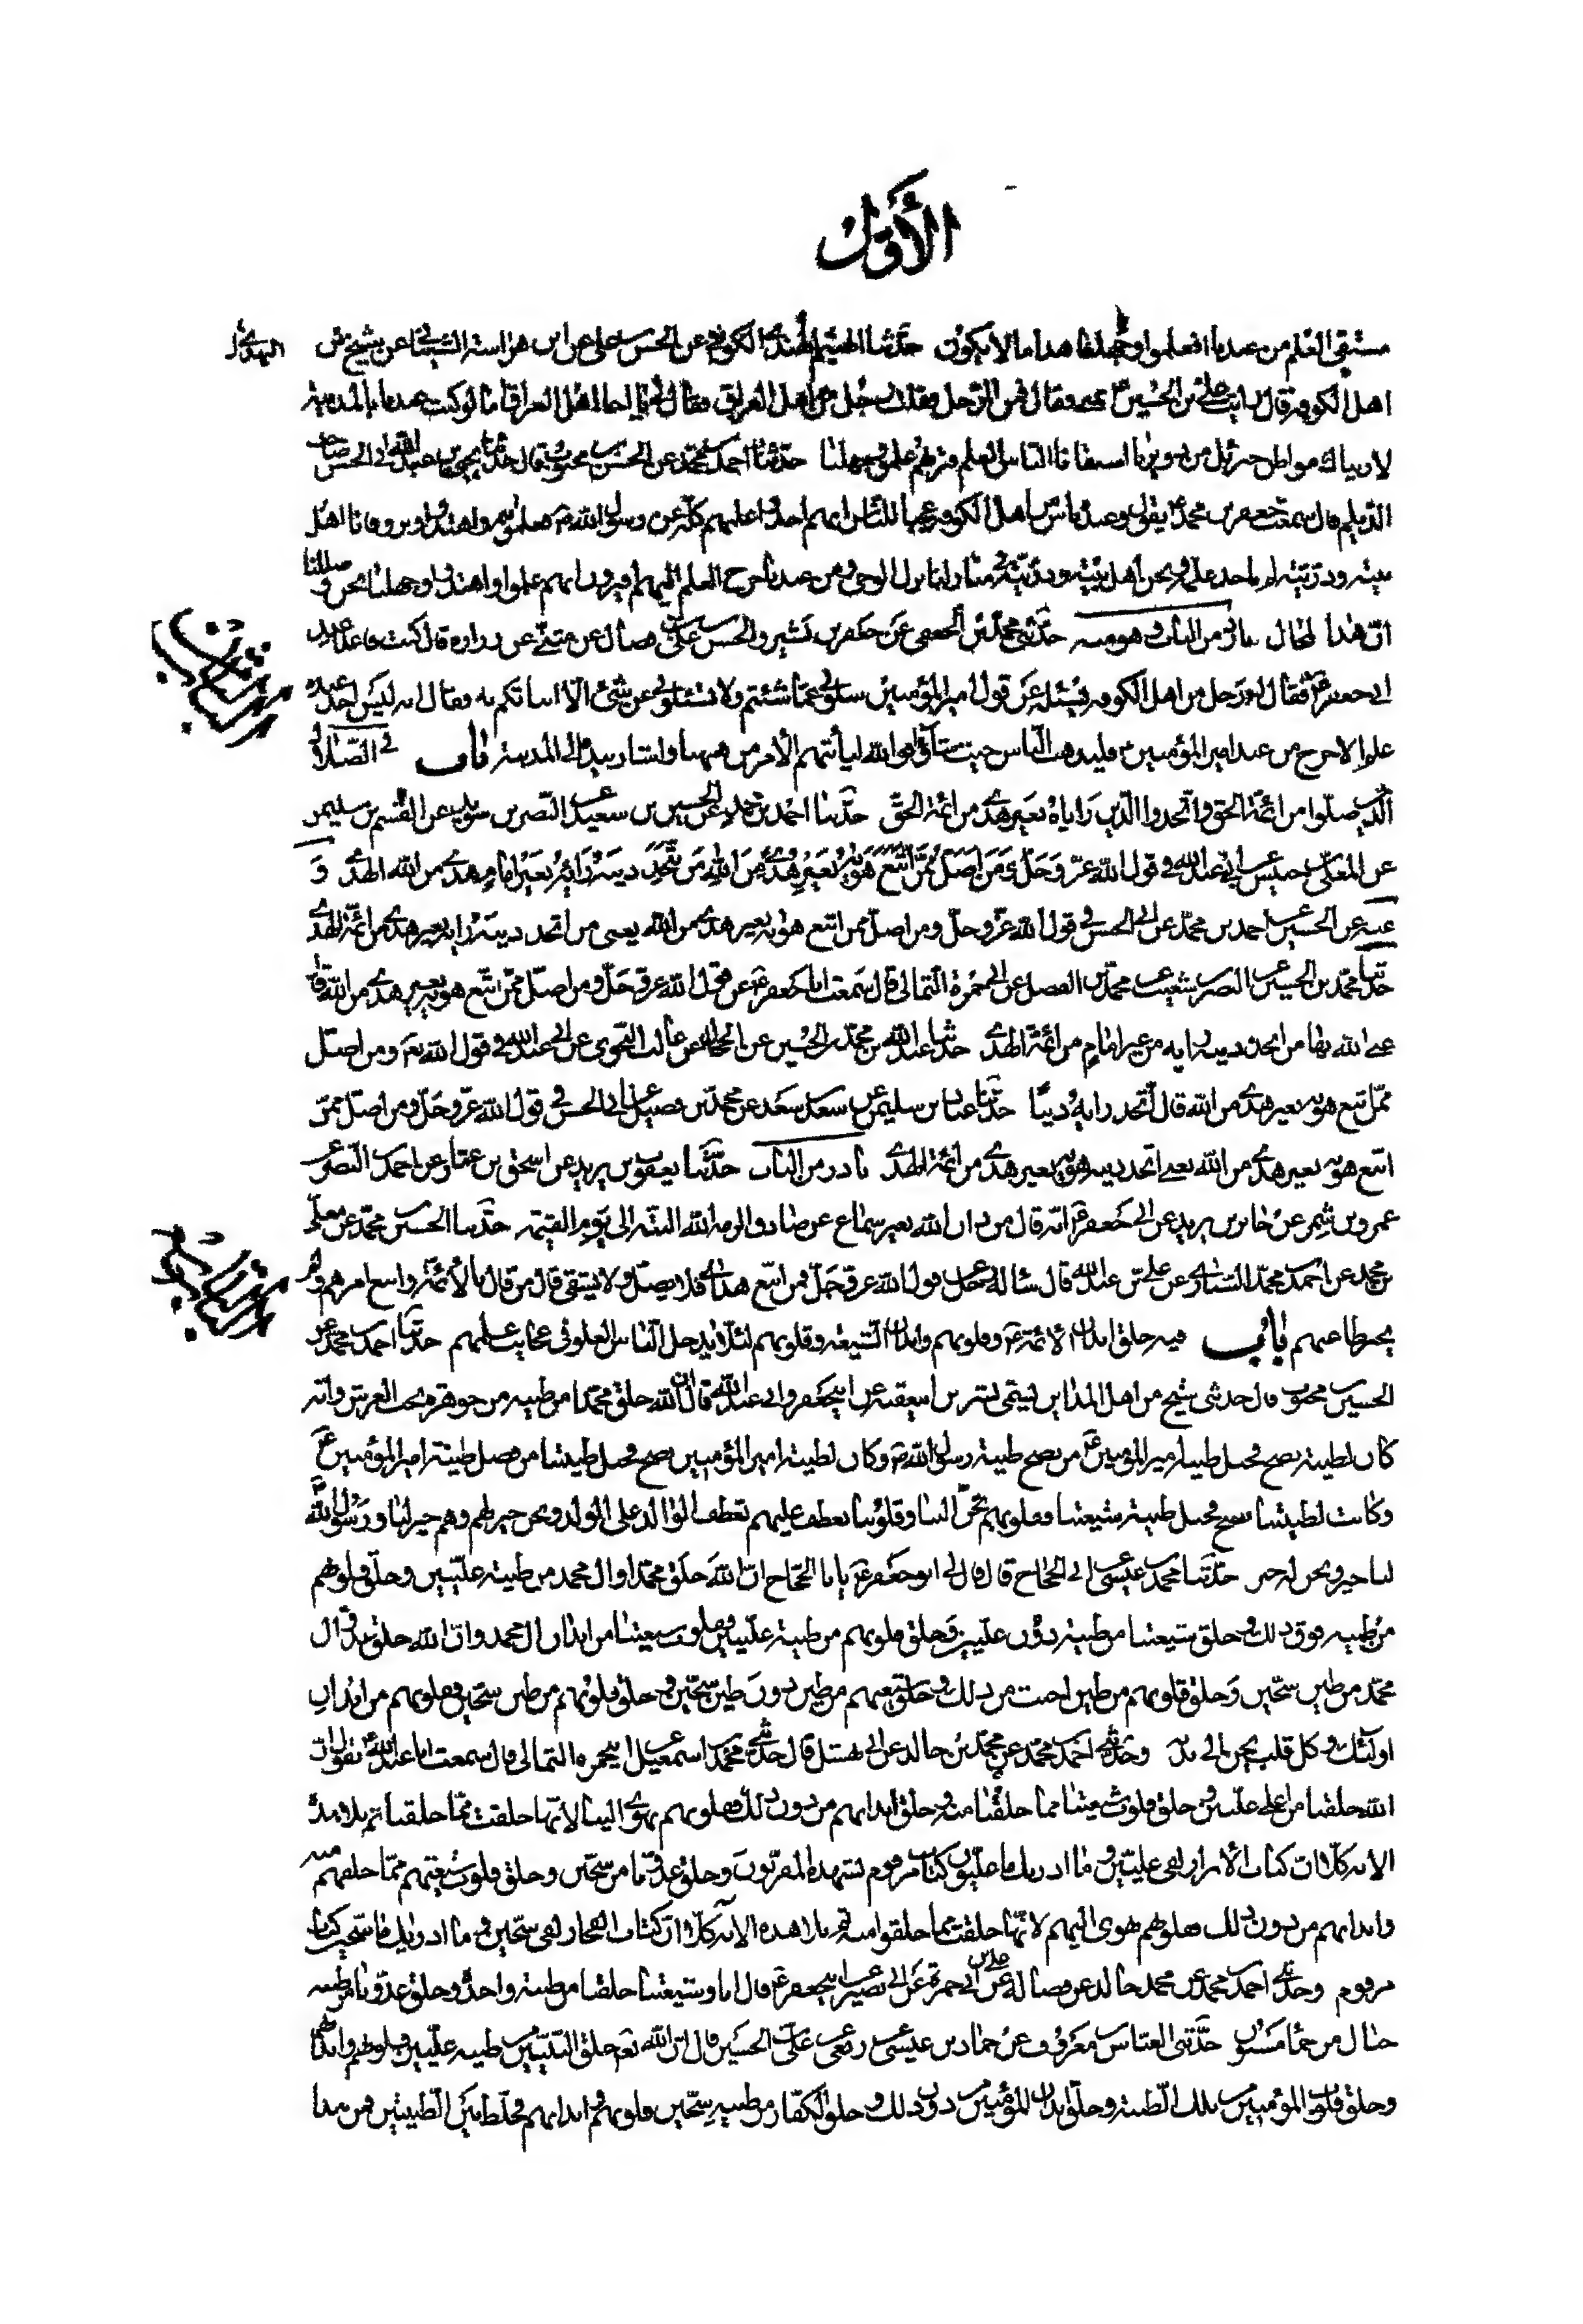 الأول
مستقى العلم من عندنا افعلموا وجهلنا هذا ما لا يكون حدثنا الهيثم النهدي الكوفي عن الحسن بن علي عن ابن هراسة الشيباني عن شيخ من
اهل الكوفة قال رايت علي بن الحسين ع بمنى فقال ممن الرجل فقلت رجل من اهل العراق فقال لي يا اخا اهل العراق اما لو كنت عندنا بالمدينة
لاريناك مواطن جبرئيل من دويرنا استقانا الناس العلم فتراهم علموا وجهلنا حدثنا احمد بن محمد عن الحسن بن محبوب قال حدثنا يحيى بن عبد الله ابي الحسن صاحب
الديلم قال سمعت جعفر بن محمد ع يقول وعنده ناس من اهل الكوفة عجبا للناس انهم اخذوا علمهم كله عن رسول الله ص فعملوا به واهتدوا ويرون انا اهل
بيته وذريته لم ناخذ علمه ونحن اهل بيته وذريته في منازلنا نزل الوحي ومن عندنا خرج العلم اليهم افيرون انهم علموا واهتدوا وجهلنا نحن وضللنا
ان هذا لمحال نادر من الباب وهو منه حدثني محمد بن الجعفي عن جعفر بن بشير والحسن بن علي بن فضال عن مثنى عن زرارة قال كنت قاعدا عند
ابي جعفر ع فقال له رجل من اهل الكوفة يسئله عن قول امير المؤمنين سلوني عما شئتم ولا تسئلوني عن شئ الا انباتكم به فقال انه ليس احد عنده
علم الا خرج من عند امير المؤمنين ع فليذهب الناس حيث شاؤا فوالله ليأتيهم الأمر من ههنا واشار بيده الى المدينة باب في الضلال
الذين ضلوا من ائمة الحق واتخذوا الدين رايا بغير هدى من ائمة الحق حدثنا احمد بن محمد عن الحسين بن سعيد عن النضر بن سويد عن القسم بن سليمن
عن المعلى بن خنيس عن ابي عبد الله في قول الله عز وجل ومن اضل ممن اتبع هويه بغير هدى من الله من يتخذ دينه رأيه بغير امام هدى من الله الهدى و
عنه عن الحسين عن احمد بن محمد عن ابي الحسن في قول الله عز وجل ومن اضل ممن اتبع هويه بغير هدى من الله يعني من اتخذ دينه رايه بغير هدى من ائمة الهدى
حدثنا محمد بن الحسين عن النضر بن شعيب عن محمد بن الفضل عن ابي حمزة الثمالي قال سمعت ابا جعفر ع عن قول الله عز وجل ومن اضل ممن اتبع هويه بغير هدى من الله قال
عنى الله بها من اتخذ دينه رايه من غير امام من ائمة الهدى حدثنا عبد الله بن محمد بن الحسين عن الحجال عن غالب النحوي عن ابي عبد الله في قول الله تع ومن اضل
ممن اتبع هويه بغير هدى من الله قال اتخذ رايه دينا حدثنا عباد بن سليمن عن سعد بن سعد عن محمد بن فضيل عن ابي الحسن في قول الله عز وجل ومن اضل ممن
اتبع هويه بغير هدى من الله يعني اتخذ دينه هويه بغير هدى من ائمة الهدى نادر من الباب حدثنا يعقوب بن يزيد عن اسحق بن عمار عن احمد بن النضر عن
عمرو بن شمر عن جابر بن يزيد عن ابي جعفر ع انه قال من دان الله بغير سماع عن صادق الزمه الله البتة الى يوم القيمة حدثنا الحسين بن محمد عن معلى
بن محمد عن احمد بن محمد السياري عن علي بن عبد الله قال سأله رجل عن قول الله عز وجل فمن اتبع هداي فلا يضل ولا يشقى قال من قال بالأئمة واتبع امرهم ولم
يجز طاعتهم باب فيه خلق ابدان الأئمة ع وقلوبهم وابدان الشيعة وقلوبهم لئلا يدخل الناس الغلو في عجايب علمهم حدثنا احمد بن محمد عن
الحسين بن محبوب قال حدثني شيخ من اهل المداين يسمى بشر بن ابي عقبة عن ابي جعفر وابي عبد الله قال ان الله خلق محمدا من طينة من جوهرة تحت العرش وانه
كان لطينته نضح فجبل طينة امير المؤمنين ع من نضح طينة رسول الله ص وكان لطينة امير المؤمنين نضح فجبل طينتنا من فضل طينة امير المؤمنين ع
وكانت لطينتنا نضح فجبل طينة شيعتنا وقلوبهم تحن الينا وقلوبنا تعطف عليهم تعطف الوالد على الولد ونحن خير لهم وهم خير لنا ورسول الله
لنا خير ونحن له خير حدثنا محمد بن عيسى عن ابي الحجاج قال قال لي ابو جعفر ع يابا الحجاج ان الله خلق محمدا وال محمد من طينة عليين وخلق قلوبهم
من طينة فوق ذلك وخلق شيعتنا من طينة دون عليين وخلق قلوبهم من طينة عليين فقلوب شيعتنا من ابدان ال محمد وان الله خلق عدو ال
محمد من طين سجين وخلق قلوبهم من طين اخبث من ذلك وخلق شيعتهم من طين دون طين سجين وخلق قلوبهم من طين سجين فقلوبهم من ابدان
اولئك وكل قلب يحن الى بدنه وحدثني احمد بن محمد عن محمد بن خالد عن ابي نهشل قال حدثني محمد بن اسمعيل عن ابي حمزة الثمالي قال سمعت ابا عبد الله ع يقول ان
الله خلقنا من اعلى عليين وخلق قلوب شيعتنا مما خلقنا منه وخلق ابدانهم من دون ذلك فقلوبهم تهوى الينا لانها خلقت مما خلقنا ثم تلا هذه
الاية كلا ان كتاب الأبرار لفي عليين وما ادريك ما عليون كتاب مرقوم يشهده المقربون وخلق عدونا من سجين وخلق قلوب شيعتهم مما خلقهم منه
وابدانهم من دون ذلك فقلوبهم تهوى اليهم لانها خلقت مما خلقوا منه ثم تلا هذه الاية كلا ان كتاب الفجار لفي سجين وما ادريك ما سجين كتاب
مرقوم وحدثني احمد بن محمد عن محمد بن خالد عن فضالة عن علي بن ابي حمزة عن ابي بصير عن ابي جعفر ع قال انا وشيعتنا خلقنا من طينة واحدة وخلق عدونا من طينة
خبال من حمأ مسنون حدثني العباس بن معروف عن حماد بن عيسى عن ربعي عن علي بن الحسين قال ان الله تع خلق النبيين من طينة عليين قلوبهم وابدانهم
وخلق قلوب المؤمنين من تلك الطينة وخلق ابدان المؤمنين من دون ذلك وخلق الكفار من طينة سجين قلوبهم وابدانهم فخلط بين الطينتين فمن هذا